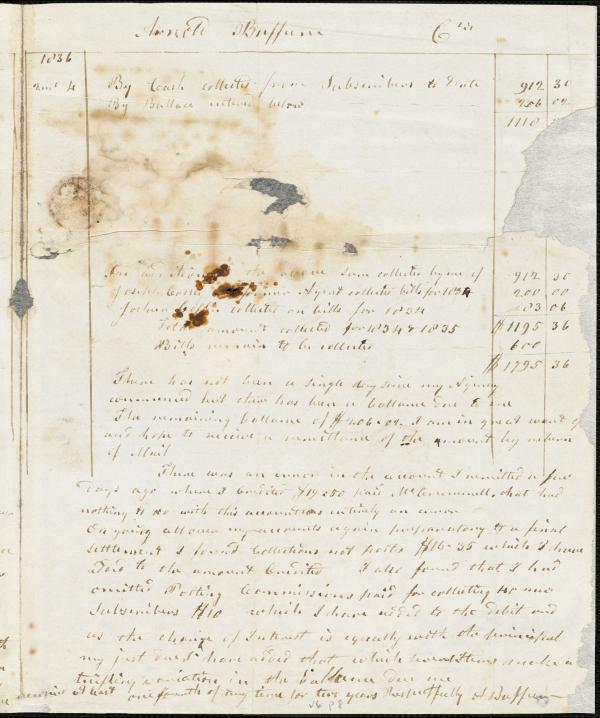 Arnold Buffum Crs
1836
2mo 4 By Cash collected from Subscribers to Date 912 30
By Ballace entered below 206 02
1118
In addition to the above Sum collected by me of 912 30
Joseph former Agent collected bills for 1834 200 00
Joshua collected on bills for 1834 83 06
Total amount collected for 1834 & 1835 $1195 36
Bills remain to be collected 600
$1795 36
There has not been a single day since my Agency
commenced but there has been a ballance due to me
The remaining ballance of $206.02. I am in great want of
and hope to receive a remittance of the amount by return
of Mail
There was an error in the account I remitted a few
Days ago where I Credited $19.50 paid that had
nothing to do with this account was entirely an error
On going all over my accounts again preparatory to a final
settlement I found Collections not posted $16.35 which I have
added to the amount Credited I also found that I had
omitted Posting Commissions paid for collecting 40 new
Subscribers $10 which I have added to the debit and
as the charge of Interest is equally with the principal
my just due I have added that which several Items make a
trifling variation in the ballance due me
at least one fourth of my time for two years Respectfully A Buffum